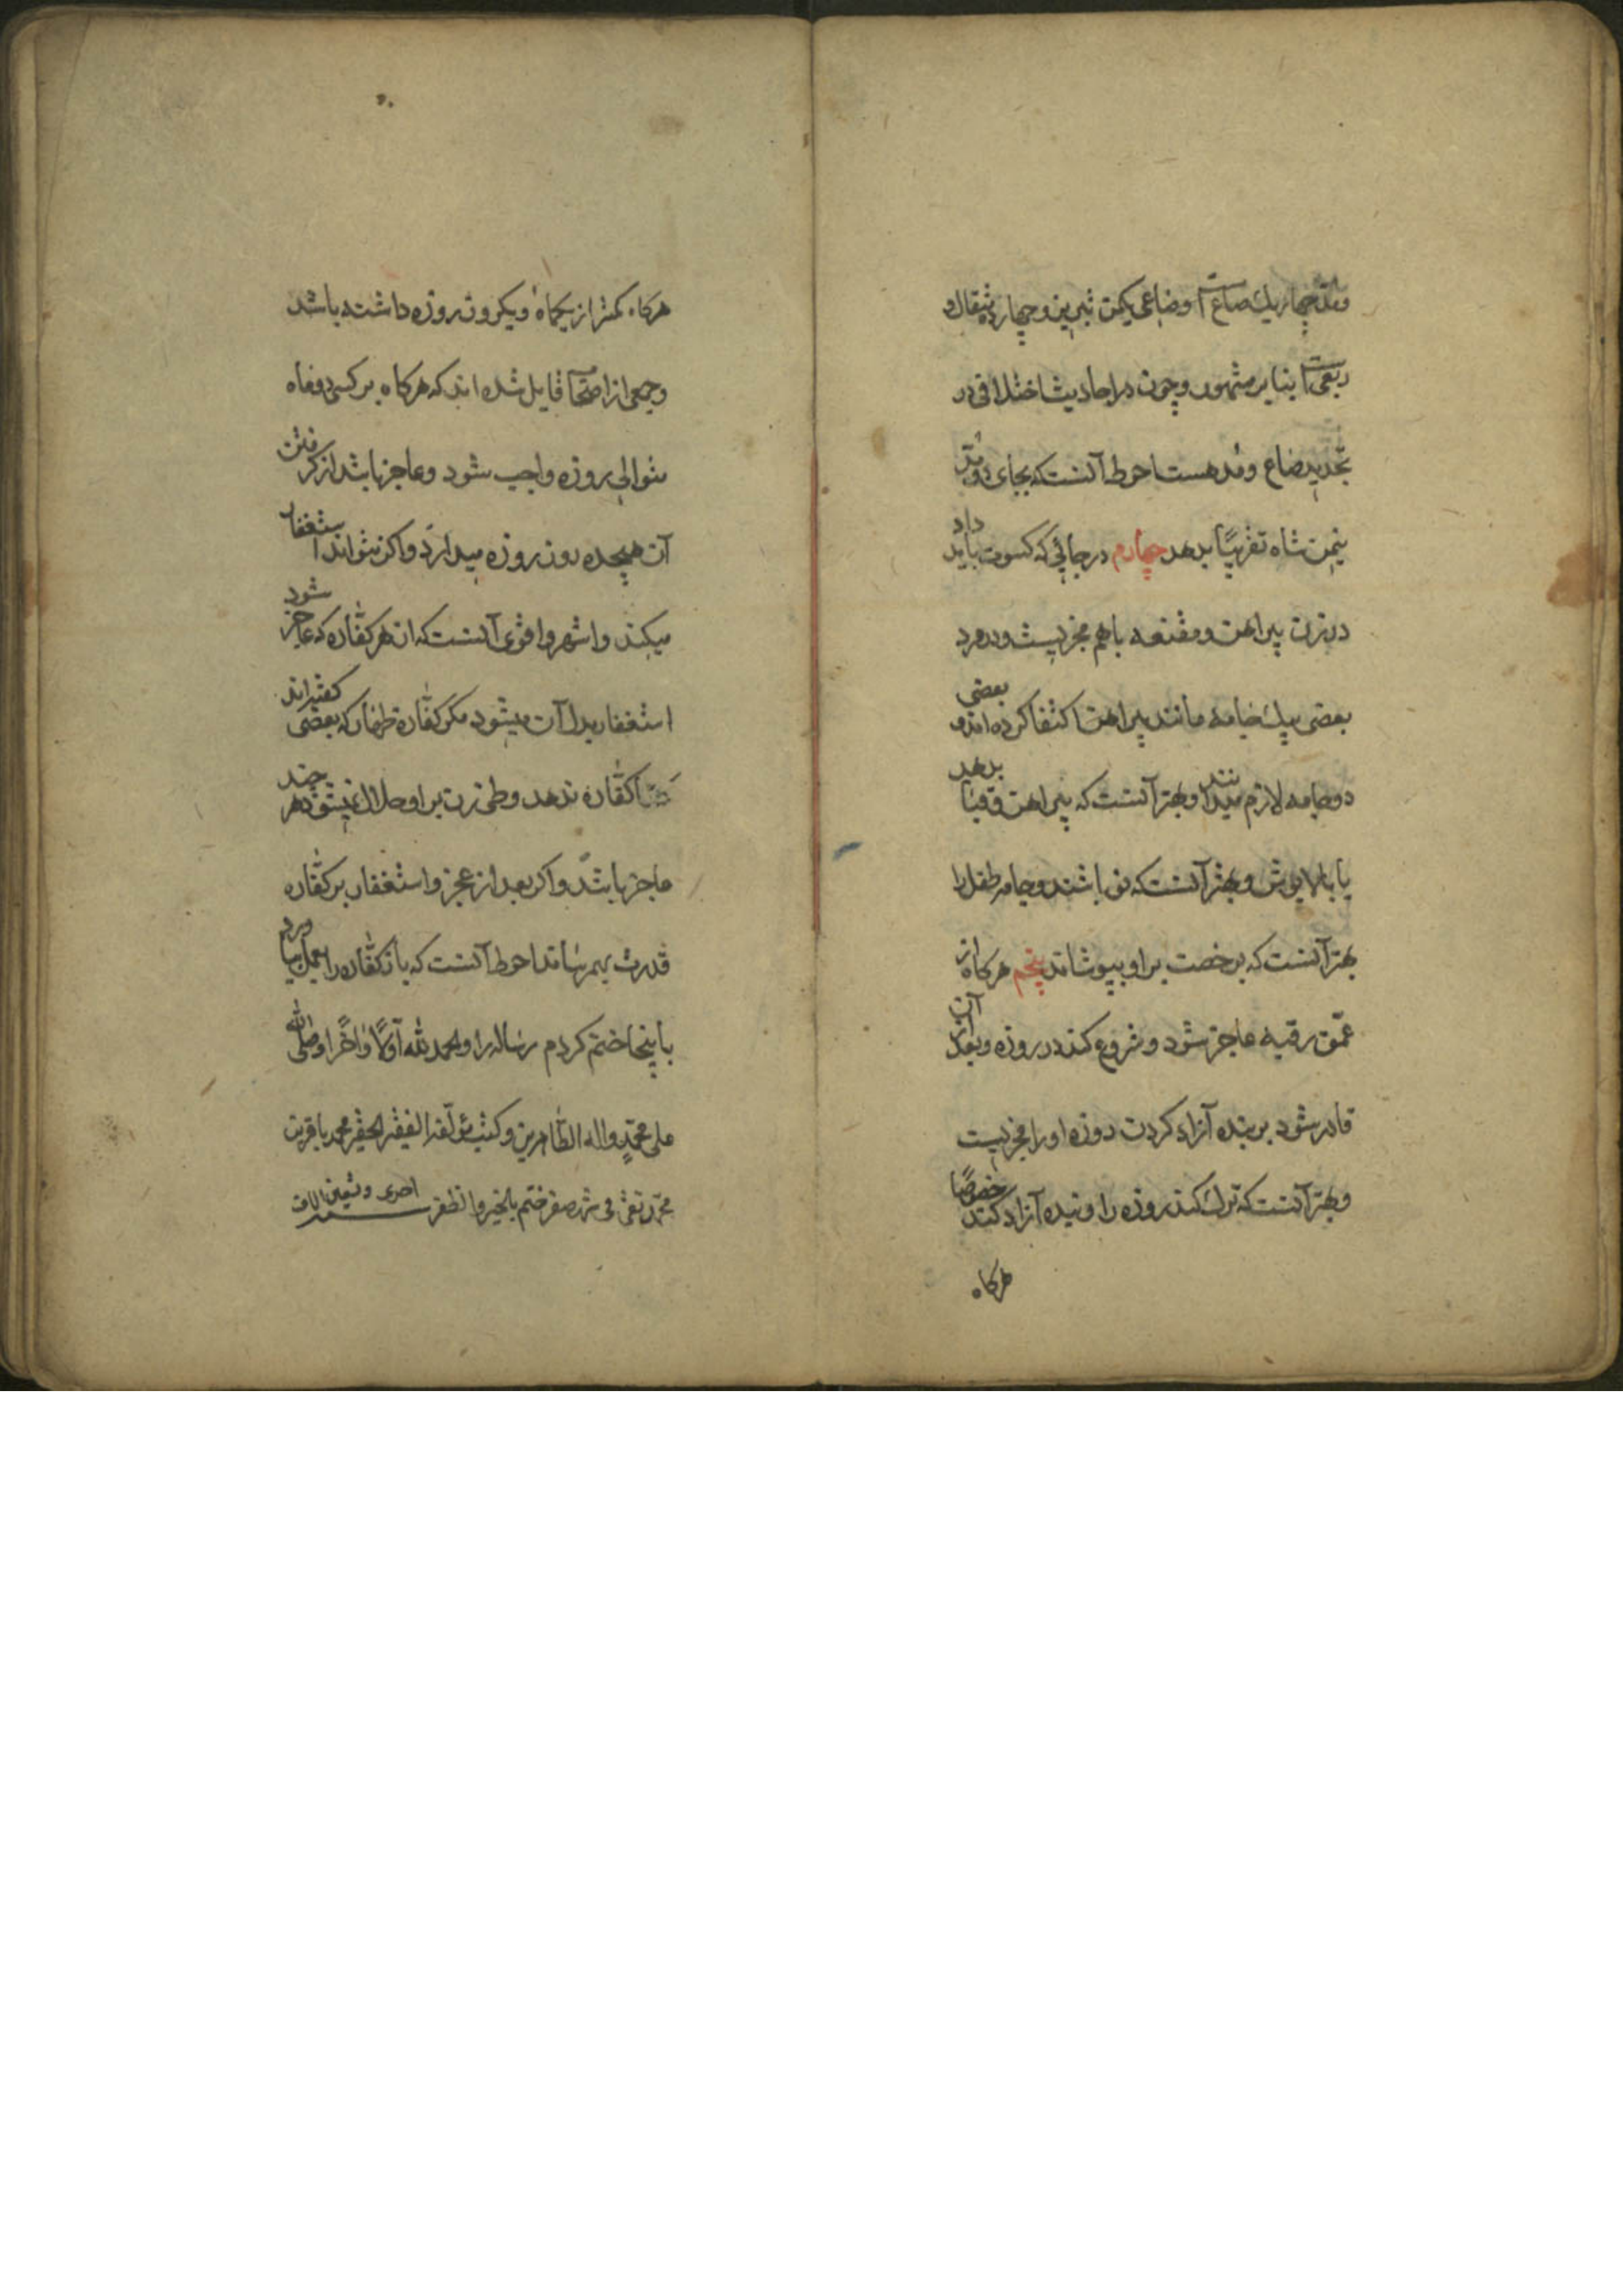 ومدّ چهار یك صاع است وصاعی یکمن تبریز و چهارده مثقال و
ربعی است بنابر مشهور وچون در احادیث اختلافی در
تحدید صاع ومد هست احوط آنست که بجای دو مدّ
نیمن شاه تقریبًا بدهد چهارم در جائی که کسوت باید داد
در زن پیراهن ومقنعه باهم مجزیست ودر مرد
بعضی بیك جامه مانند پیراهن اکتفا کرده اند و بعضی
دو جامه لازم میدانند وبهتر آنست که پیراهن وقبا بدهد
یا بالاپوش وبهتر آنست که نو باشند وجامه طفل را
بهتر آنست که برخصت براو بپوشاند پنجم هرکاه از
عتق رقبه عاجز شود وشروع کند در روزه وبعد از آن
قادر شود بر بنده آزاد کردن روزه اورا مجزیست
وبهتر آنست که ترك کند روزه را وبنده آزاد کند خصوصًا
هرکاه
هرکاه کمتر از یکماه ویکروز روزه داشته باشد
وجمعی از اصحاب قایل شده اند که هرکاه بر کسی دو ماه
متوالی روزه واجب شود وعاجز باشد از کرفتن
آن هیجده روز روزه میدارد واکر نتواند استغفار
میکند واشهر واقوی آنست که از هر کفّاره که عاجز شود
استغفار بدل آن میشود مکر کفّاره ظهار که بعضی کفته اند
تا کفّاره ندهد وطی زن براو حلال نمیشود هر چند
عاجز باشد واکر بعد از عجز واستغفار بر کفّاره
قدرت بهم رساند احوط آنست که باز کفّاره را بعمل بیاورد
باینجا ختم کردم رساله را والحمد لله اوّلًا واٰخرًا وصلی الله
علی محمّدٍ واله الطّاهرین وکتب مؤلّفه الفقیر الحقیر محمد باقر بن
محمّد تقی فی شهر صفر ختم بالخیر والظفر